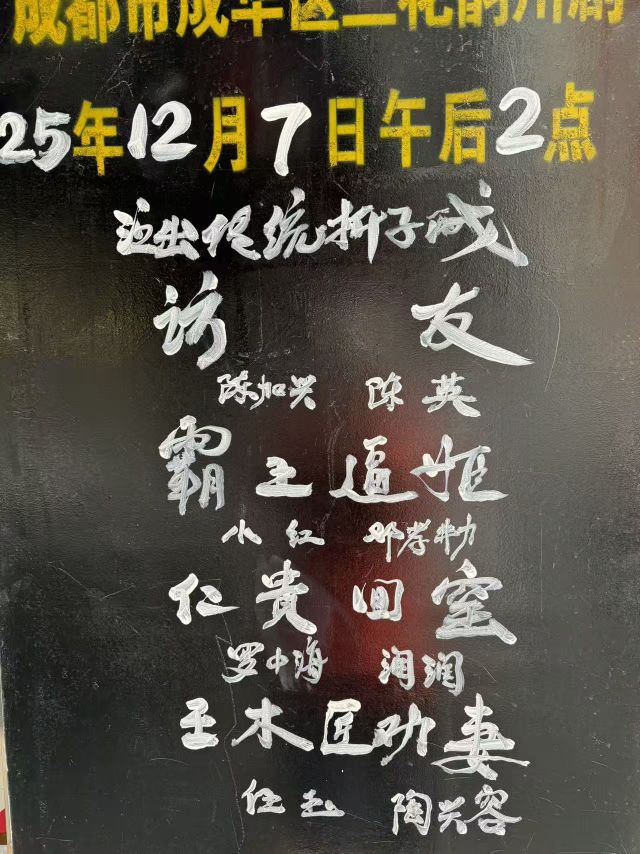 成都市成华区三花韵川剧
25年12月7日午后2点
演出传统折子戏
访友
陈加兴 陈英
霸王逼姬
小红 邓孝勤
仁贵回窑
罗中海 润润
王木匠劝妻
任玉 陶兴容